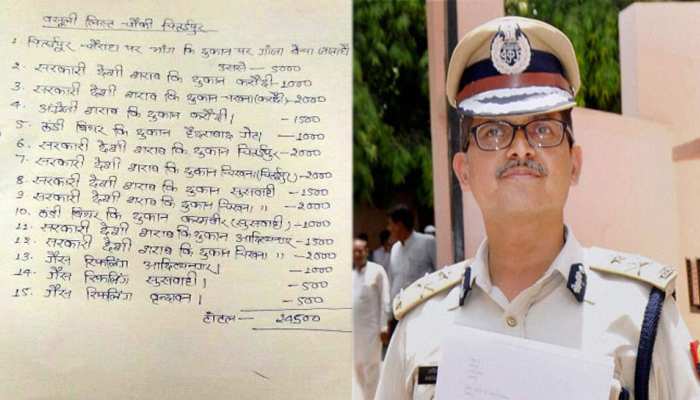 वसूली लिस्ट चौकी चितईपुर
1. चितईपुर चौराहा पर भांग कि दुकान पर गाँजा बेचा जाता है
उससे – 5000
2. सरकारी देशी शराब कि दुकान करौंदी – 1000
3. सरकारी देशी शराब कि दुकान चखना (करौंदी) – 2000
4. अंग्रेजी शराब कि दुकान करौंदी। – 1500
5. ठंडी बियर कि दुकान हैदराबाद गेट। – 1000
6. सरकारी देशी शराब कि दुकान चितईपुर – 2000
7. सरकारी देशी शराब कि दुकान चिखना (चितईपुर) – 2000
8. सरकारी देशी शराब कि दुकान सुसवाही – 1500
9. सरकारी देशी शराब कि दुकान चिखना " – 2000
10. ठंडी बियर कि दुकान करमवीर (सुसवाही) – 1000
11. सरकारी देशी शराब कि दुकान आदित्यनगर – 1500
12. सरकारी देशी शराब कि दुकान चिखना " – 2000
13. गैस रिफलिंग आदित्यनगर। – 1000
14. गैस रिफलिंग सुसवाही। – 500
15. गैस रिफलिंग वृन्दावन। – 500
टोटल – 24500